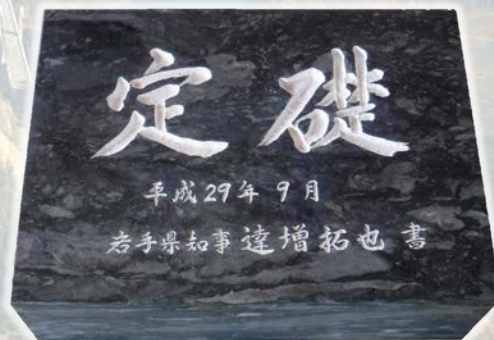 定礎
平成29年 9月
岩手県知事 達増拓也 書